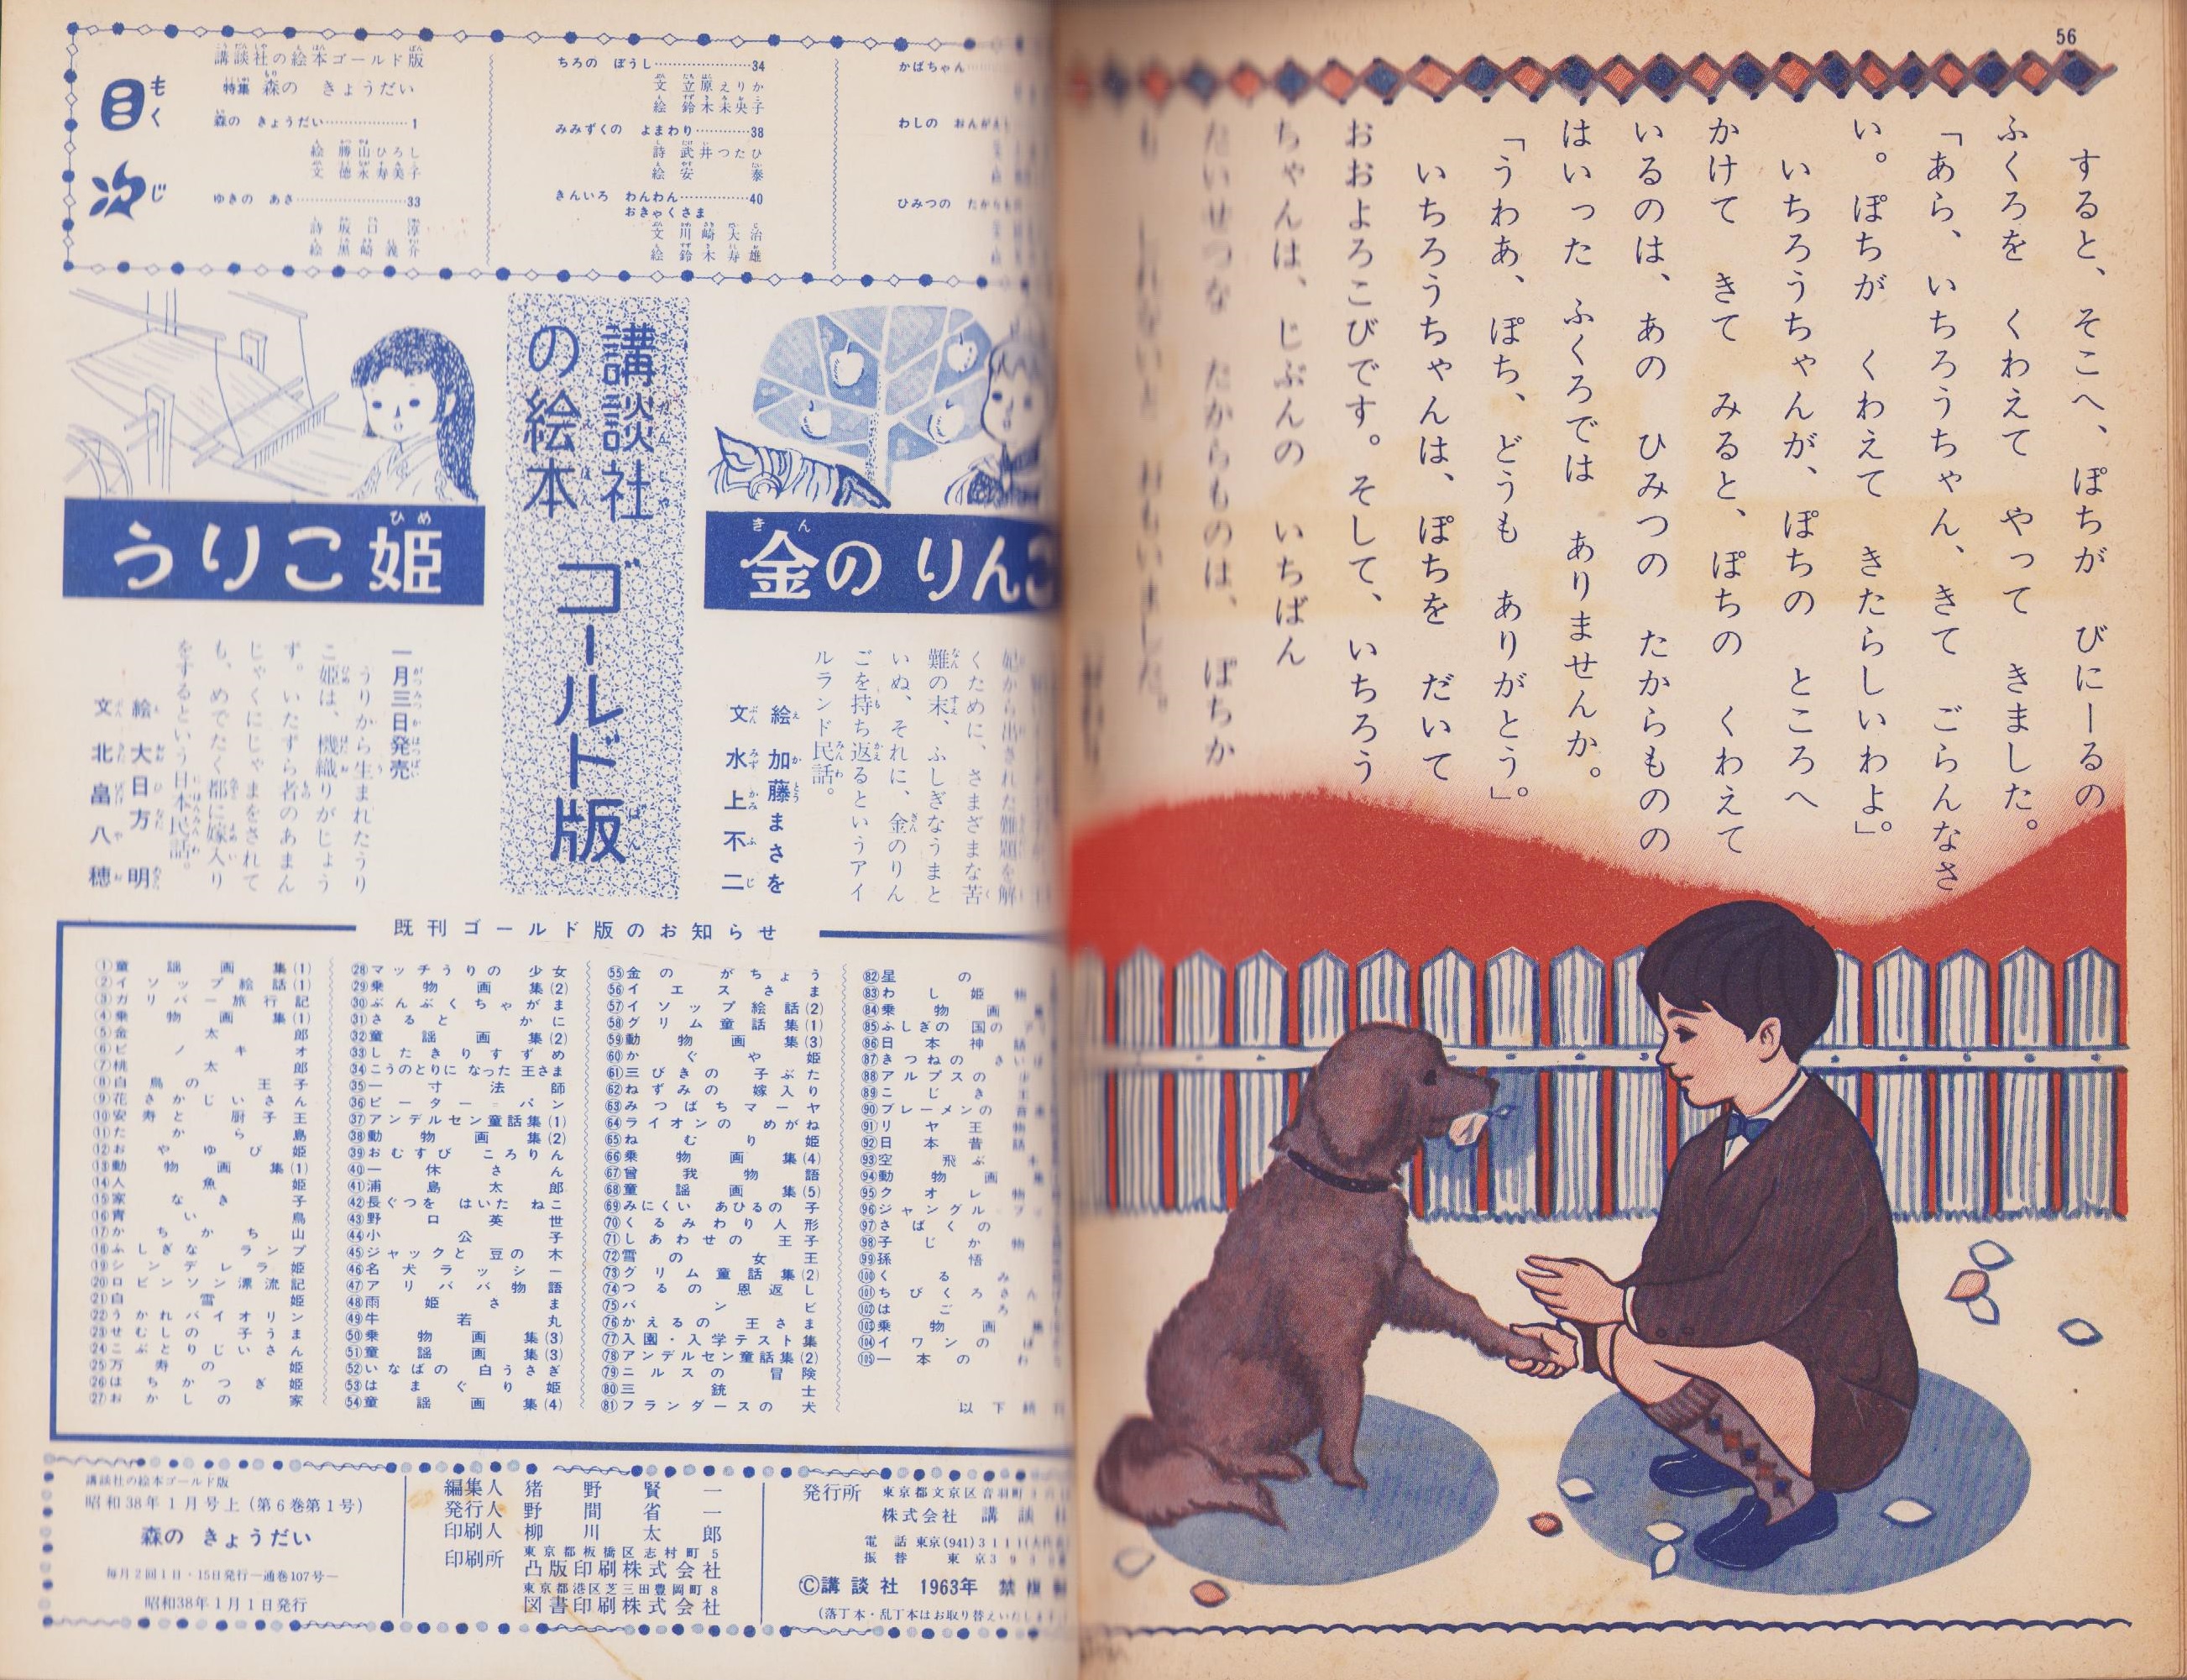 56
すると、そこへ、ぽちが びにーるの
ふくろを くわえて やって きました。
「あら、いちろうちゃん、きて ごらんなさ
い。ぽちが くわえて きたらしいわよ」。
いちろうちゃんが、ぽちの ところへ
かけて きて みると、ぽちの くわえて
いるのは、あの ひみつの たからものの
はいった ふくろでは ありませんか。
「うわあ、ぽち、どうも ありがとう」。
いちろうちゃんは、ぽちを だいて
おおよろこびです。そして、いちろう
ちゃんは、じぶんの いちばん
たいせつな たからものは、ぽちか
目次
もくじ
講談社の絵本ゴールド版
特集 森の きょうだい
森の きょうだい………………1
絵 勝山ひろし
文 徳永寿美子
ゆきの あさ………………33
詩 坂口淳
絵 黒崎義介
ちろの ぼうし………………34
文 立原えりか
絵 鈴木未央子
みみずくの よまわり…………38
詩 武井つたひ
絵 安泰
きんいろ わんわん…………40
おきゃくさま
文 川崎大治
絵 鈴木寿雄
かばちゃん
わしの おんがえし
ひみつの
金の りんご
講談社の絵本 ゴールド版
うりこ姫
くために、さまざまな苦
難の末、ふしぎなうまと
いぬ、それに、金のりん
ごを持ち返るというアイ
ルランド民話。
絵 加藤まさを
文 水上不二
一月三日発売
うりから生まれたうり
こ姫は、機織りがじょう
ず。いたずら者のあまん
じゃくにじゃまをされて
も、めでたく都に嫁入り
をするという日本民話。
絵 大日方明
文 北畠八穂
既刊ゴールド版のお知らせ
①童謡画集(1)
②イソップ絵話(1)
③ガリバー旅行記
④乗物画集(1)
⑤金太郎
⑥ピノキオ
⑦桃太郎
⑧白鳥の王子
⑨花さかじいさん
⑩安寿と厨子王
⑪たから島
⑫おやゆび姫
⑬動物画集(1)
⑭人魚姫
⑮家なき子
⑯青い鳥
⑰かちかち山
⑱ふしぎな ランプ
⑲シンデレラ姫
⑳ロビンソン漂流記
㉑白雪姫
㉒うかれバイオリン
㉓せむしの 子うま
㉔こぶとりじいさん
㉕万寿の姫
㉖はちかつぎ姫
㉗おかしの家
㉘マッチうりの 少女
㉙乗物画集(2)
㉚ぶんぶくちゃがま
㉛さると かに
㉜童謡画集(2)
㉝したきりすずめ
㉞こうのとりに なった 王さま
㉟一寸法師
㊱ピーター・パン
㊲アンデルセン童話集(1)
㊳動物画集(2)
㊴おむすび ころりん
㊵一休さん
㊶浦島太郎
㊷長ぐつを はいた ねこ
㊸野口英世
㊹小公子
㊺ジャックと 豆の 木
㊻名犬ラッシー
㊼アリババ物語
㊽雨姫さま
㊾牛若丸
㊿乗物画集(3)
51童謡画集(3)
52いなばの 白うさぎ
53はまぐり姫
54童謡画集(4)
55金の がちょう
56イエスさま
57イソップ絵話(2)
58グリム童話集(1)
59動物画集(3)
60かぐや姫
61三びきの 子ぶた
62ねずみの 嫁入り
63みつばちマーヤ
64ライオンの めがね
65ねむり姫
66乗物画集(4)
67曾我物語
68童謡画集(5)
69みにくい あひるの 子
70くるみわり人形
71しあわせの 王子
72雪の女王
73グリム童話集(2)
74つるの恩返し
75バンビ
76かえるの 王さま
77入園・入学テスト集
78アンデルセン童話集(2)
79ニルスの冒険
80三銃士
81フランダースの犬
82星の
83わし姫
84乗物画
85ふしぎの 国の
86日本神
87きつねの さい
88アルプスの
89こじき
90ブレーメンの
91リヤ王
92日本昔
93空飛ぶ
94動物画
95クオレ
96ジャングル
97さばくの
98子じか
99孫悟
100くるみ
101ちびくろさん
102はごろ
103乗物画
104イワンの
105一本の
以下続
講談社の絵本ゴールド版
昭和38年1月号上(第6巻第1号)
森の きょうだい
毎月2回1日・15日発行—通巻107号—
昭和38年1月1日発行
編集人 猪野賢一
発行人 野間省一
印刷人 柳川太郎
印刷所 東京都板橋区志村町5
凸版印刷株式会社
東京都港区芝三田豊岡町8
図書印刷株式会社
発行所 東京都文京区音羽町
株式会社 講談社
電話 東京(941)3111
振替 東京393
©講談社 1963年 禁複
(落丁本・乱丁本はお取り替えいたします